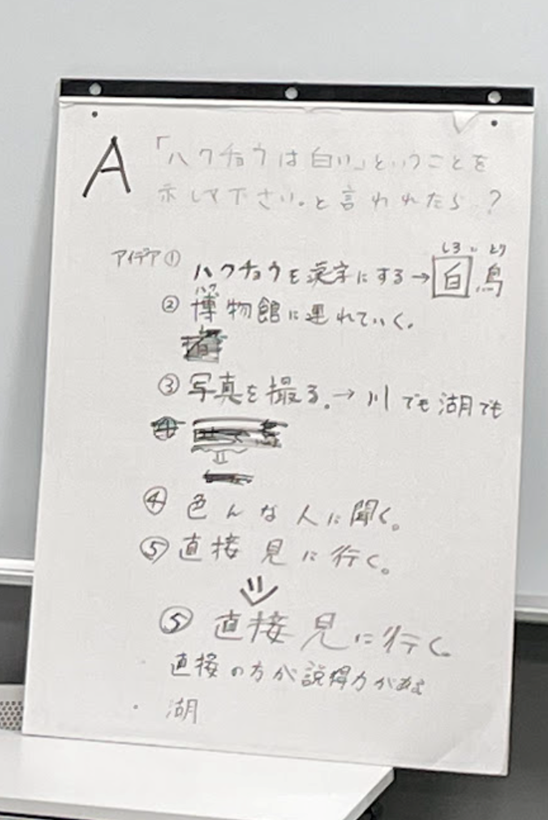 A
「ハクチョウは白い」ということを
示して下さい。と言われたら?
アイデア① ハクチョウを漢字にする→白鳥
しろい とり
ハク
② 博物館に連れていく。
③ 写真を撮る。→川でも湖でも
④
④ 色んな人に聞く。
⑤ 直接見に行く。
⑤ 直接見に行く。
・直接の方が説得力がある
・湖